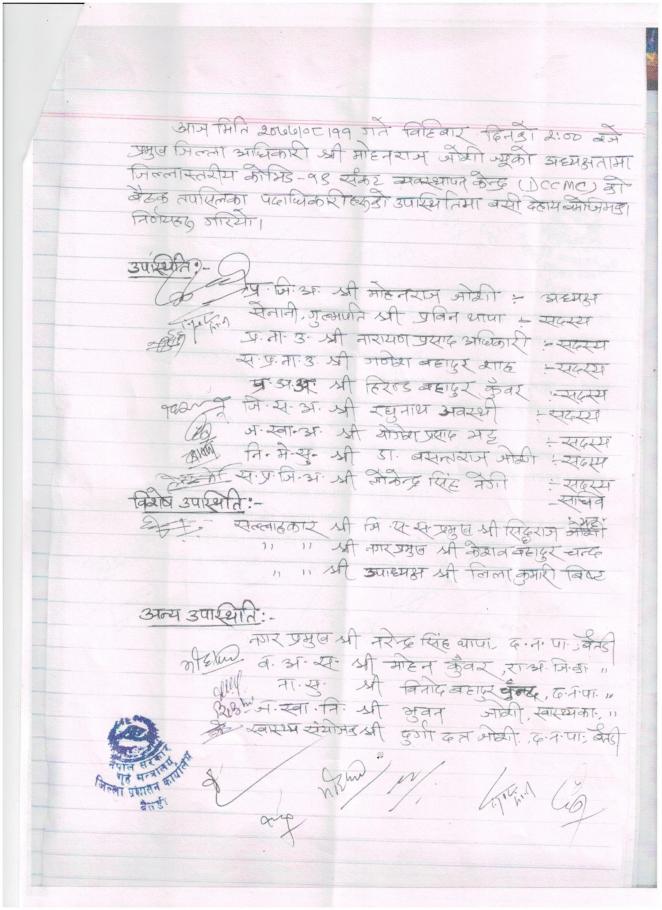 आज मिति २०७७।०८।११ गते विहिवार दिनको २:०० बजे
प्रमुख जिल्ला अधिकारी श्री मोहनराज जोशी ज्यूको अध्यक्षतामा
जिल्लास्तरीय कोभिड-१९ संकट व्यवस्थापन केन्द्र (DCCMC) को
बैठक तपसिलका पदाधिकारीहरुको उपस्थितिमा बसी देहाय बमोजिमका
निर्णयहरु गरियो।
उपस्थिति:-
प्र.जि.अ. श्री मोहनराज जोशी :- अध्यक्ष
सेनानी, गुल्मपति श्री प्रविन थापा :- सदस्य
प्र.ना.उ. श्री नारायण प्रसाद अधिकारी :- सदस्य
स.प्र.ना.उ श्री गणेश बहादुर शाह :- सदस्य
श्री हिरण्ड बहादुर कुँवर :- सदस्य
जि.स.अ. श्री रघुनाथ अवस्थी :- सदस्य
ज.स्वा.अ. श्री योगेश प्रसाद भट्ट :- सदस्य
नि.मे.सु. श्री डा. बसन्तराज जोशी :- सदस्य
स.प्र.जि.अ. श्री जोगेन्द्र सिंह नेगी :- सदस्य
-साचिव
विशेष उपस्थिति:-
सल्लाहकार श्री जि.स.स.प्रमुख श्री सिद्धराज
" " श्री नगर प्रमुख श्री केशव बहादुर चन्द
" " श्री उपाध्यक्ष श्री निला कुमारी बिष्ट
अन्य उपस्थिति:-
नगर प्रमुख श्री नरेन्द्र सिंह थापा, द.न.पा. बैतडी
व.अ.स. श्री मोहन कुँवर, रा.अ.जि.का "
ना.सु. श्री विनोद बहादुर चन्द, द.न.पा. "
ज.स्वा.नि. श्री भुवन जोशी, स्वास्थ्यका. "
स्वास्थ्य संयोजक श्री दुर्गा दत्त जोशी, द.न.पा. बैतडी
नेपाल सरकार
गृह मन्त्रालय
जिल्ला प्रशासन कार्यालय
बैतडी